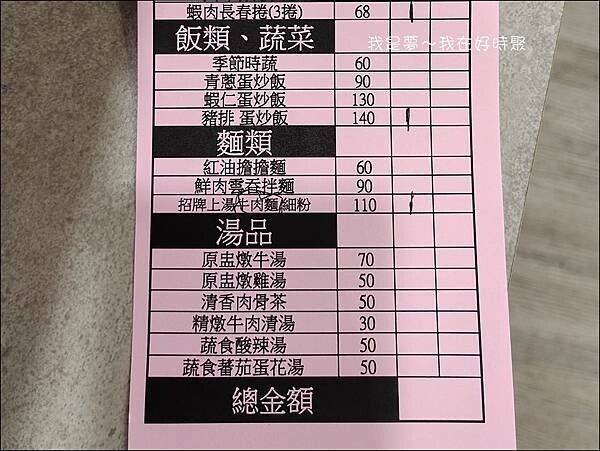 蝦肉長春捲(3捲) 68
飯類、蔬菜
我是夢~我在好時聚
季節時蔬 60
青蔥蛋炒飯 90
蝦仁蛋炒飯 130
豬排 蛋炒飯 140
麵類
紅油擔擔麵 60
鮮肉雲吞拌麵 90
招牌上湯牛肉麵/細粉 110
湯品
原盅燉牛湯 70
原盅燉雞湯 50
清香肉骨茶 50
精燉牛肉清湯 30
蔬食酸辣湯 50
蔬食蕃茄蛋花湯 50
總金額